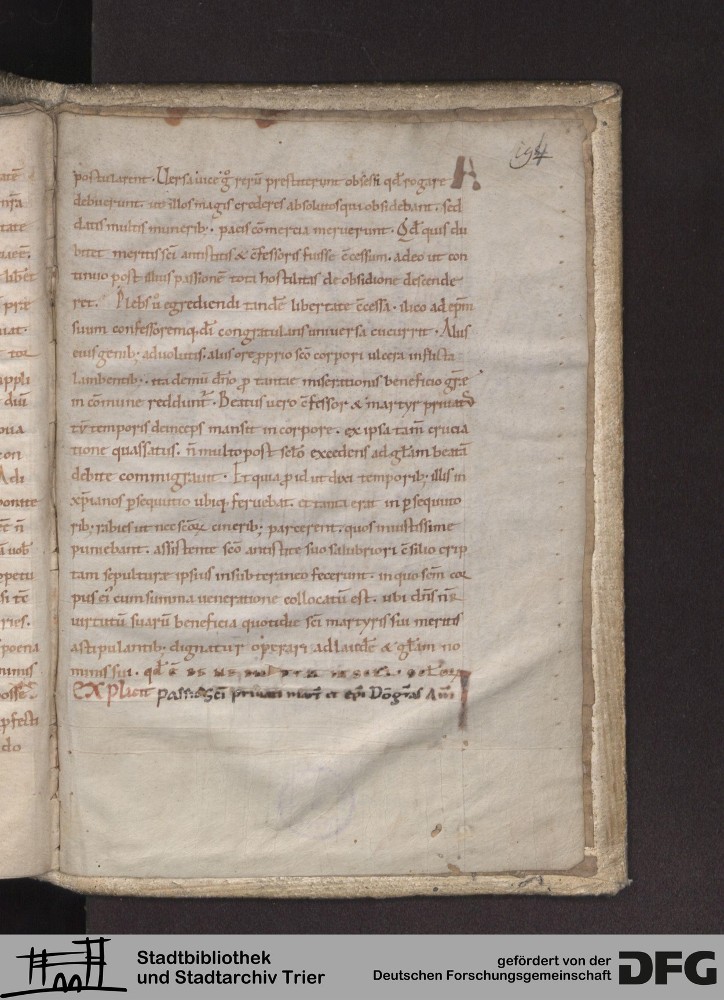 194
postularent. Uersa uice g° rerū prestiterunt obsessi qđ rogare
debuerunt. ut illos magis crederes absolutos qui obsidebant. sed
datis multis munerib; pacis cōmercia meruerunt. Qđ quis du
bitet meritis sci antistitis & cfessoris fuisse cessum. adeo ut con
tinuo post illius passionē tota hostilitas de obsidione descende
ret. Plebs u° egrediendi tandē libertate cessa. ilico ad epm
suum confessoremq; di congratulans uniuersa cucurrit. Alus
eius genib; aduolutis. alus ore pprio sco corpori ulcera inflicta
lambentib; ita demū dno p tantae miserationis beneficio grae
in cōmune reddunt. Beatus uero cfessor & martyr priuatus
tp temporis deinceps mansit in corpore. ex ipsa tam crucia
tione quassatus. n multo post sclo excedens ad gtam beatā
debite commigrauit. Et quia p id ut dixi temporib; illis in
xpianos psequutio ubiq; feruebat. et tanta erat in psequuto
rib; rabies ut nec scoꝝ cinerib; parcerent. quos iniustissime
puniebant. assistente sco antistite suo salubriori csilio crip
tam sepulturae ipsius in subterraneo fecerunt. in quo scm cor
pus ei cum summa ueneratione collocatū est. ubi dns nr
uirtutū suarū beneficia quotidie sci martyris sui meritis
astipulantib; dignatur operari ad laudē & gtam no
minis sui. qđ
Explicit Passio Sci priuati mart et epi Dō gras Am
Stadtbibliothek
und Stadtarchiv Trier
gefördert von der
Deutschen Forschungsgemeinschaft
DFG